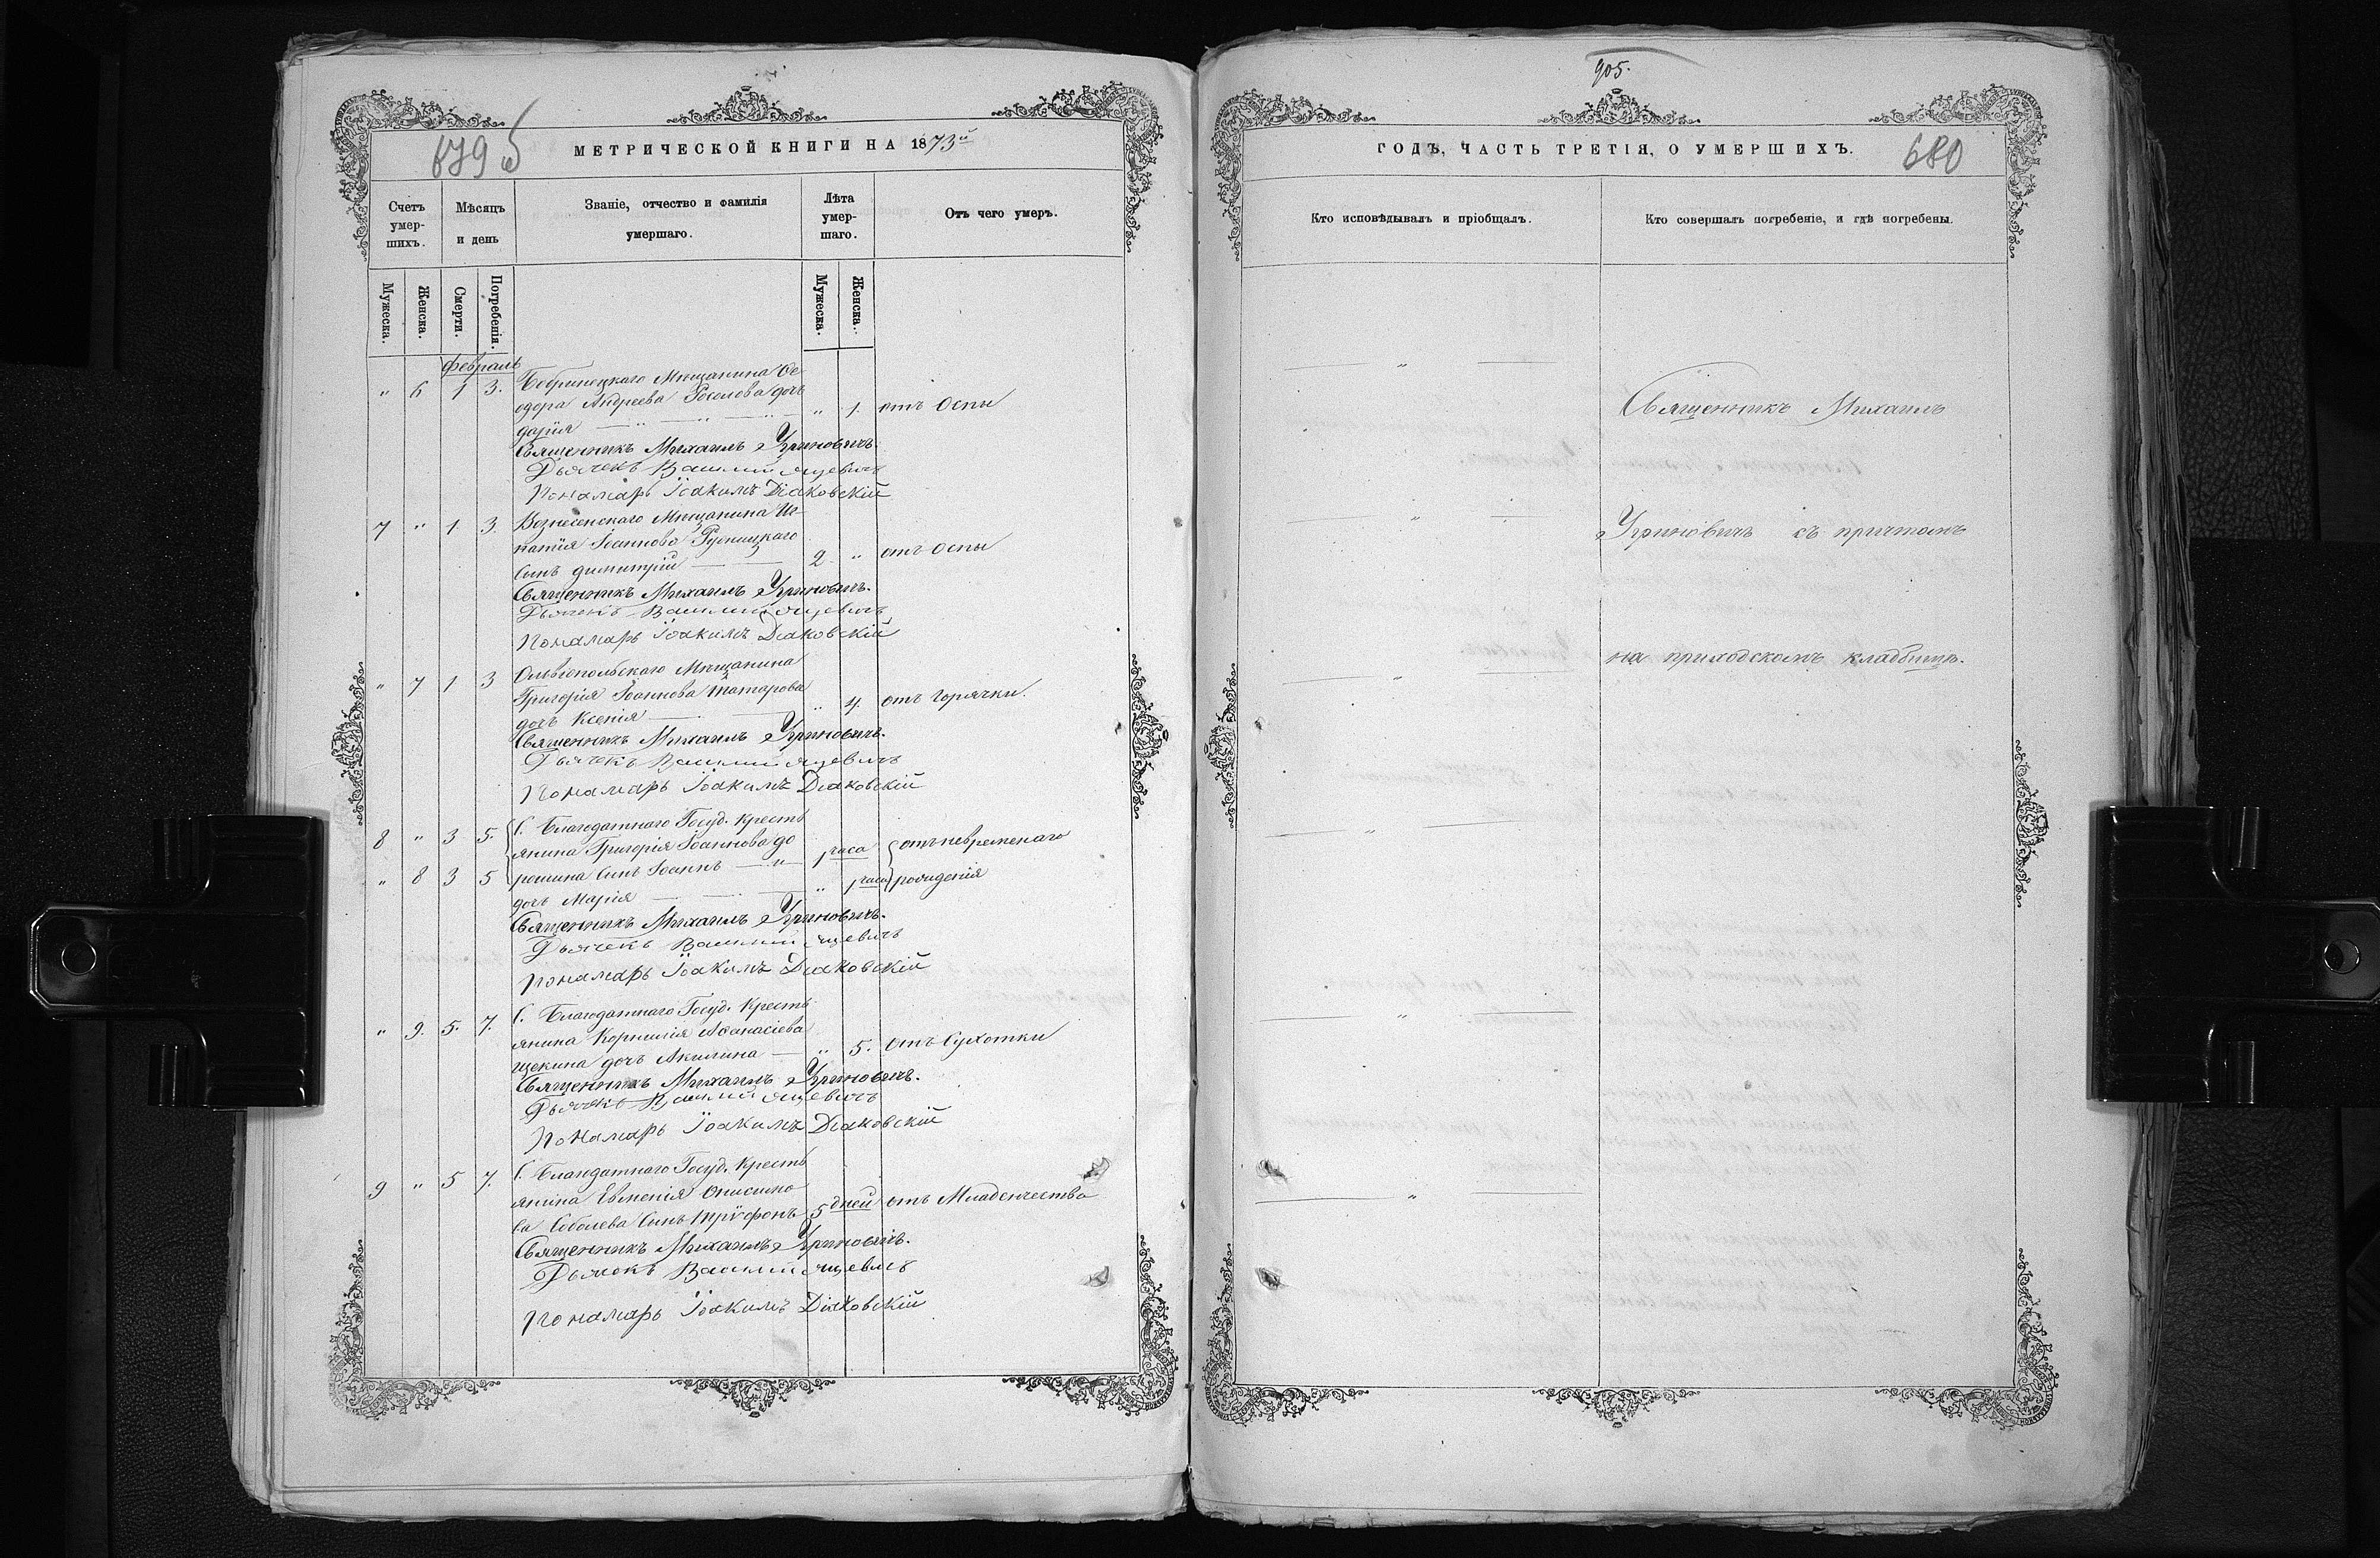 679 б
МЕТРИЧЕСКОЙ КНИГИ НА 1873й
Счетъ умер-шихъ.
Мѣсяцъ и день
Званіе, отчество и фамилія умершаго.
Лѣта умер-шаго.
Отъ чего умеръ.
Мужеска.
Женска.
Смерти.
Погребенія.
Мужеска.
Женска.
февраль
" 6 1 3. Бобринецкаго Мѣщанина Ѳе
одора Андреева дочь " 1. отъ Оспы
дарія
Священникъ Михаилъ Угриновичъ.
Дьячекъ Василий Яцевичъ
Пономарь Іоакимъ Діаковскій
7 " 1. 3. Вознесенскаго Мѣщанина Иг
натія Іоаннова
Сынъ димитрій 2. " отъ Оспы
Священникъ Михаилъ Угриновичъ.
Дьячекъ Василий Яцевичъ
Пономарь Іоакимъ Діаковскій
" 7 1 3 Ольвіопольскаго Мѣщанина
Григорія Іоаннова Татарова
дочь Ксенія " 4. отъ Горячки.
Священникъ Михаилъ Угриновичъ.
Дьячекъ Василий Яцевичъ
Пономарь Іоакимъ Діаковскій
8 " 3 5. С. Благодатнаго Госуд. Кресть
янина Григорія Іоаннова до
рошина Сынъ Іоаннъ " 1 часа отъ невременаго
" 8 3 5 дочь Марія " 1 часа рождения
Священникъ Михаилъ Угриновичъ.
Дьячекъ Василий Яцевичъ
Пономарь Іоакимъ Діаковскій
" 9. 5. 7. С. Благодатнаго Госуд. Кресть
янина Корнилія Аѳанасіева
щекина дочь Акилина " 5. отъ Сухотки
Священникъ Михаилъ Угриновичъ.
Дьячекъ Василий Яцевичъ
Пономарь Іоакимъ Діаковскій
9 " 5 7. С. Благодатнаго Госуд. Кресть
янина Евменія Онисимо
ва Соболева Сынъ Трифонъ 5 дней отъ Младенчества
Священникъ Михаилъ Угриновичъ.
Дьячекъ Василий Яцевичъ
Пономарь Іоакимъ Діаковскій
905.
ГОДЪ, ЧАСТЬ ТРЕТІЯ, О УМЕРШИХЪ.
680
Кто исповѣдывалъ и пріобщалъ.
Кто совершалъ погребеніе, и гдѣ погребены.
Священникъ Михаилъ
Угриновичъ съ причтомъ
на приходскомъ кладбищѣ.